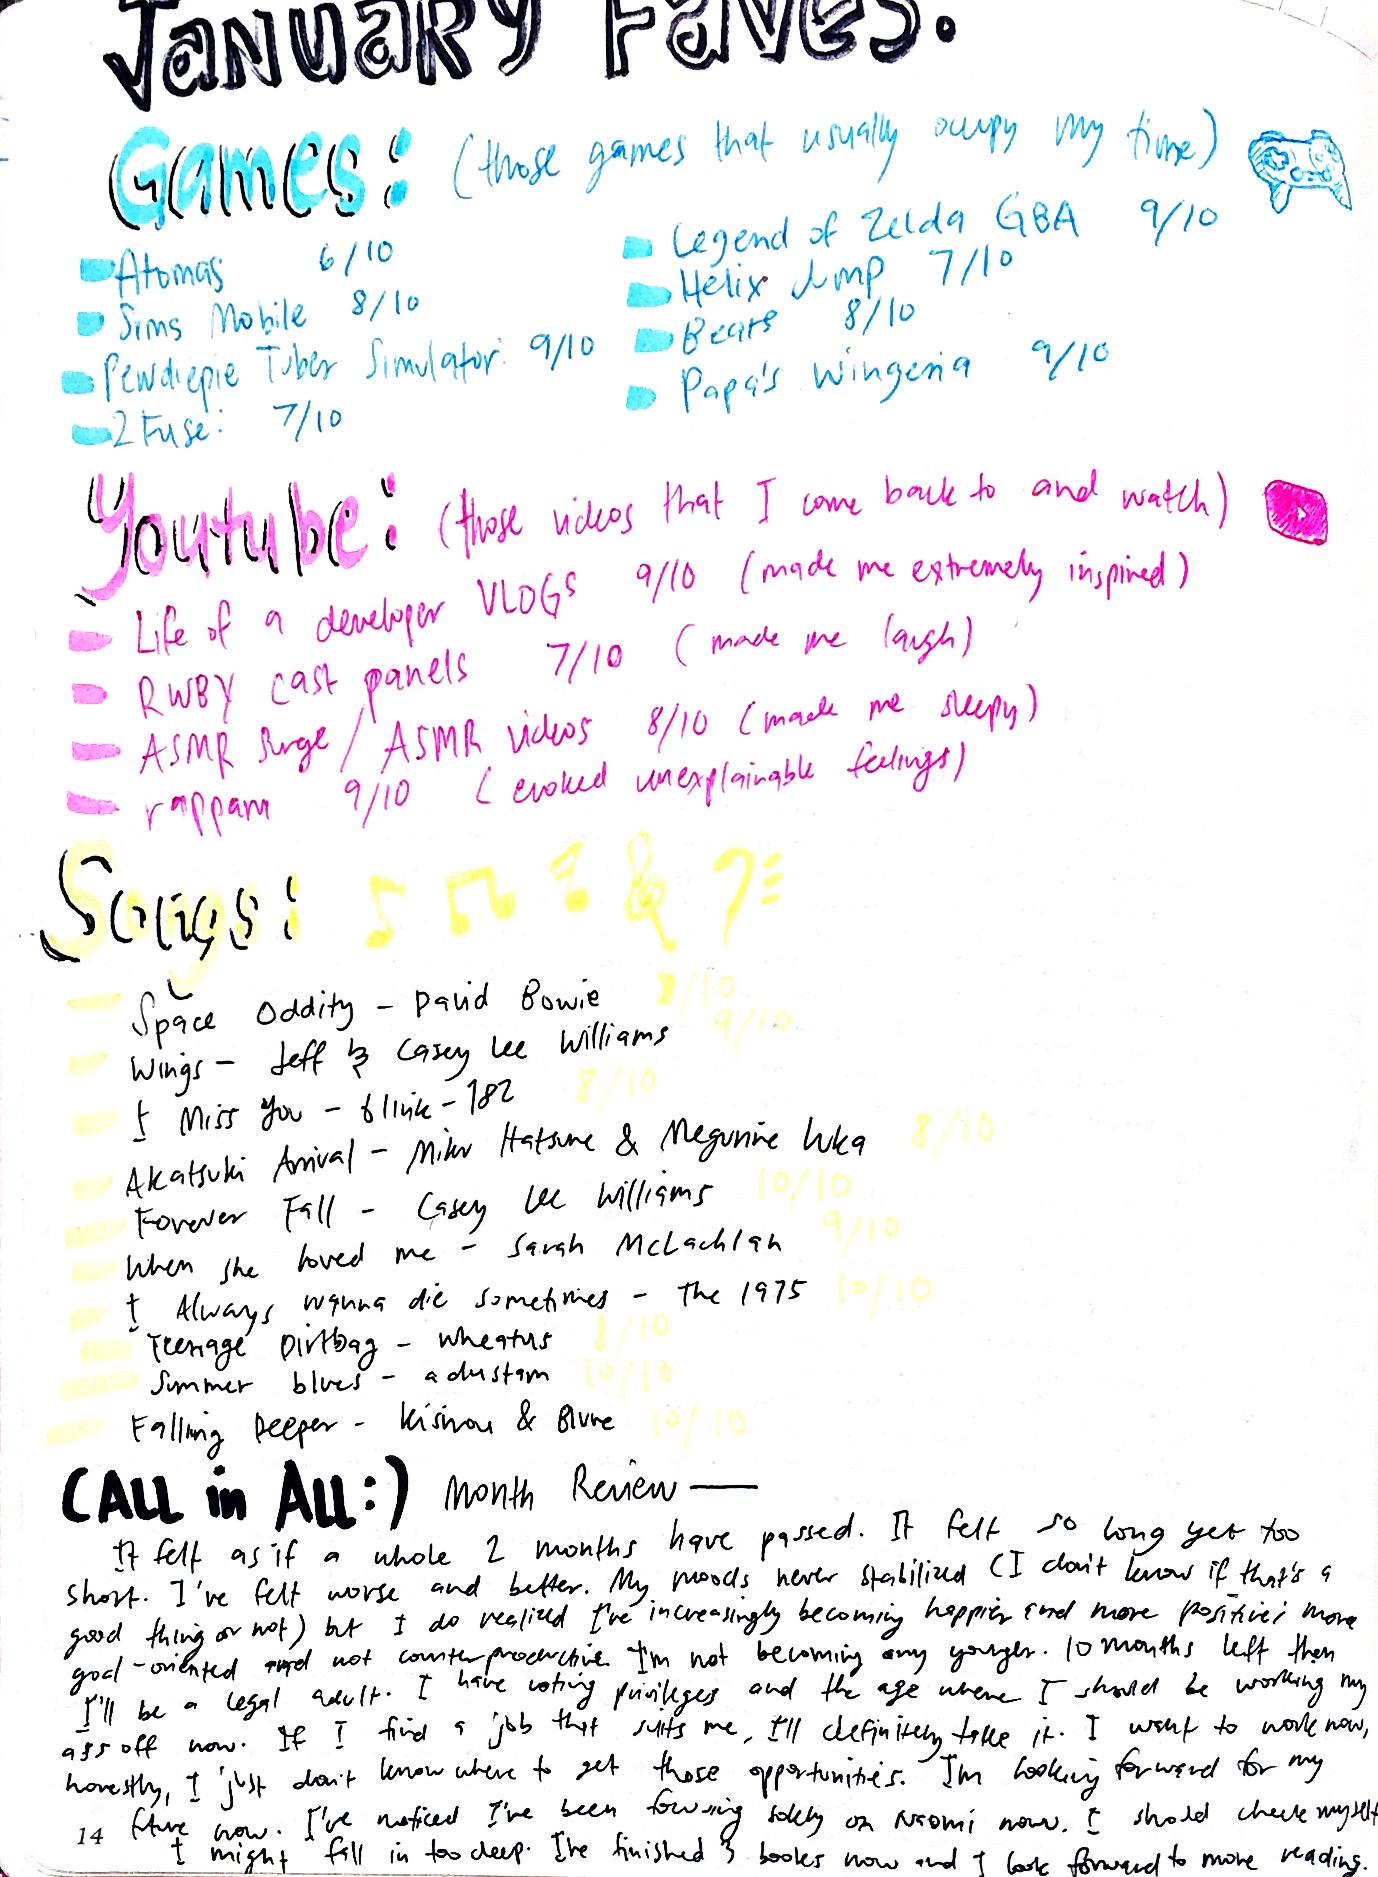 January Faves.
Games: (those games that usually occupy my time)
Atomas 6/10
Sims Mobile 8/10
Pewdiepie Tuber Simulator: 9/10
2Fuse: 7/10
Legend of Zelda GBA 9/10
Helix Jump 7/10
Beats 8/10
Papa's Wingeria 9/10
Youtube: (those videos that I come back to and watch)
Life of a developer VLOGS 9/10 (made me extremely inspired)
RWBY cast panels 7/10 (made me laugh)
ASMR Surge / ASMR videos 8/10 (made me sleepy)
rappam 9/10 (evoked unexplainable feelings)
Songs:
Space Oddity - David Bowie 8/10
Wings - Jeff & Casey Lee Williams 9/10
I Miss You - blink-182 8/10
Akatsuki Arrival - Miku Hatsune & Megurine Luka 8/10
Forever Fall - Casey Lee Williams 10/10
When she loved me - Sarah McLachlan 9/10
I Always wanna die sometimes - The 1975 10/10
Teenage Dirtbag - Wheatus 8/10
Summer blues - adustam 10/10
Falling Deeper - & 10/10
(ALL in ALL:) Month Review —
It felt as if a whole 2 months have passed. It felt so long yet too
short. I've felt worse and better. My moods never stabilized (I don't know if that's a
good thing or not) but I do realized I've increasingly becoming happier and more positive; more
goal-oriented and not counterproductive. I'm not becoming any younger. 10 months left then
I'll be a legal adult. I have voting privileges and the age where I should be working my
ass off now. If I find a job that suits me, I'll definitely take it. I want to work now,
honestly, I just don't know where to get those opportunities. I'm looking forward for my
future now. I've noticed I've been focusing solely on Naomi now. I should check myself
I might fall in too deep. I've finished 3 books now and I look forward to more reading.
14